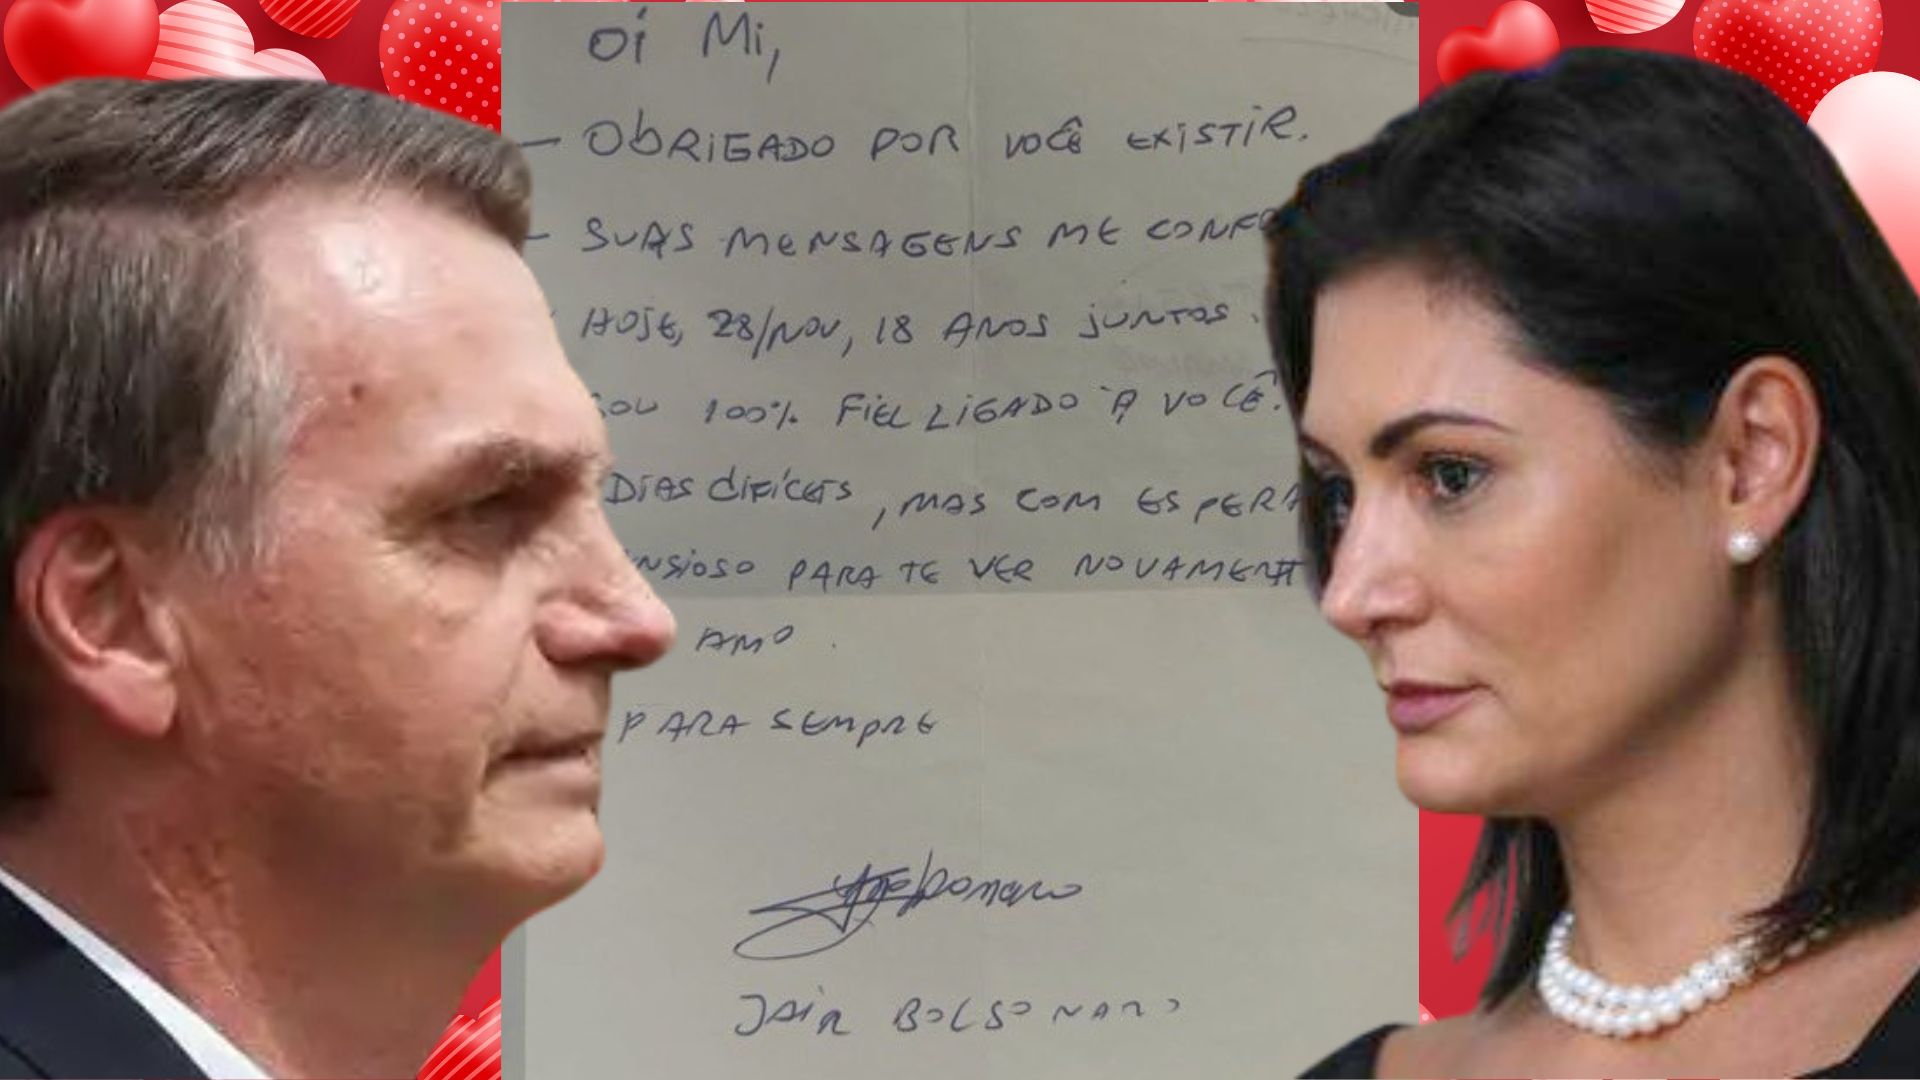 Oi Mi,
— OBRIGADO POR VOCÊ EXISTIR.
— SUAS MENSAGENS ME CONF
HOJE, 28/NOV, 18 ANOS JUNTOS.
SOU 100% FIEL LIGADO À VOCÊ.
DIAS DIFÍCEIS, MAS COM ESPERA
NSIOSO PARA TE VER NOVAMENT
AMO.
PARA SEMPRE
JAIR BOLSONARO